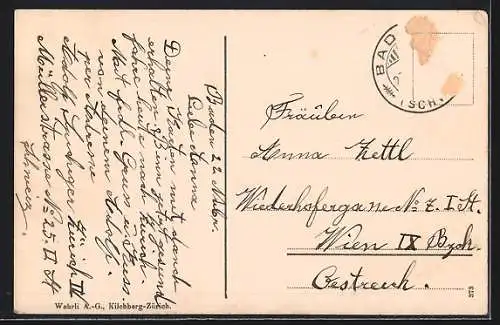 Baden 22
Liebe Anna
Deine Karten mit Dank
erhalten
fahre heute nach Zürich.
Gruss u. Kuss.
von deinem Adolf.
per Adresse
Adolf Zürich III
Müllerstrasse No 25. II St
Schweiz.
Wehrli A.-G., Kilchberg-Zürich.
BAD
(SCH.
Fräulein
Anna Zettl
Wiederhofergasse No 7. I St.
Wien IX Bzrk.
Oestreich.
373